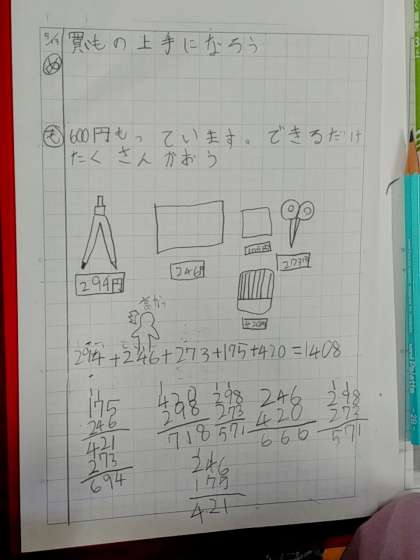 5/15 買いもの上手になろう
め
も 600円もっています。できるだけ
たくさんかおう
294円
246円
273円
420円
294+246+273+175+420=1408
175
246
421
273
694
420
298
718
298
273
571
246
420
666
298
273
571
246
175
421